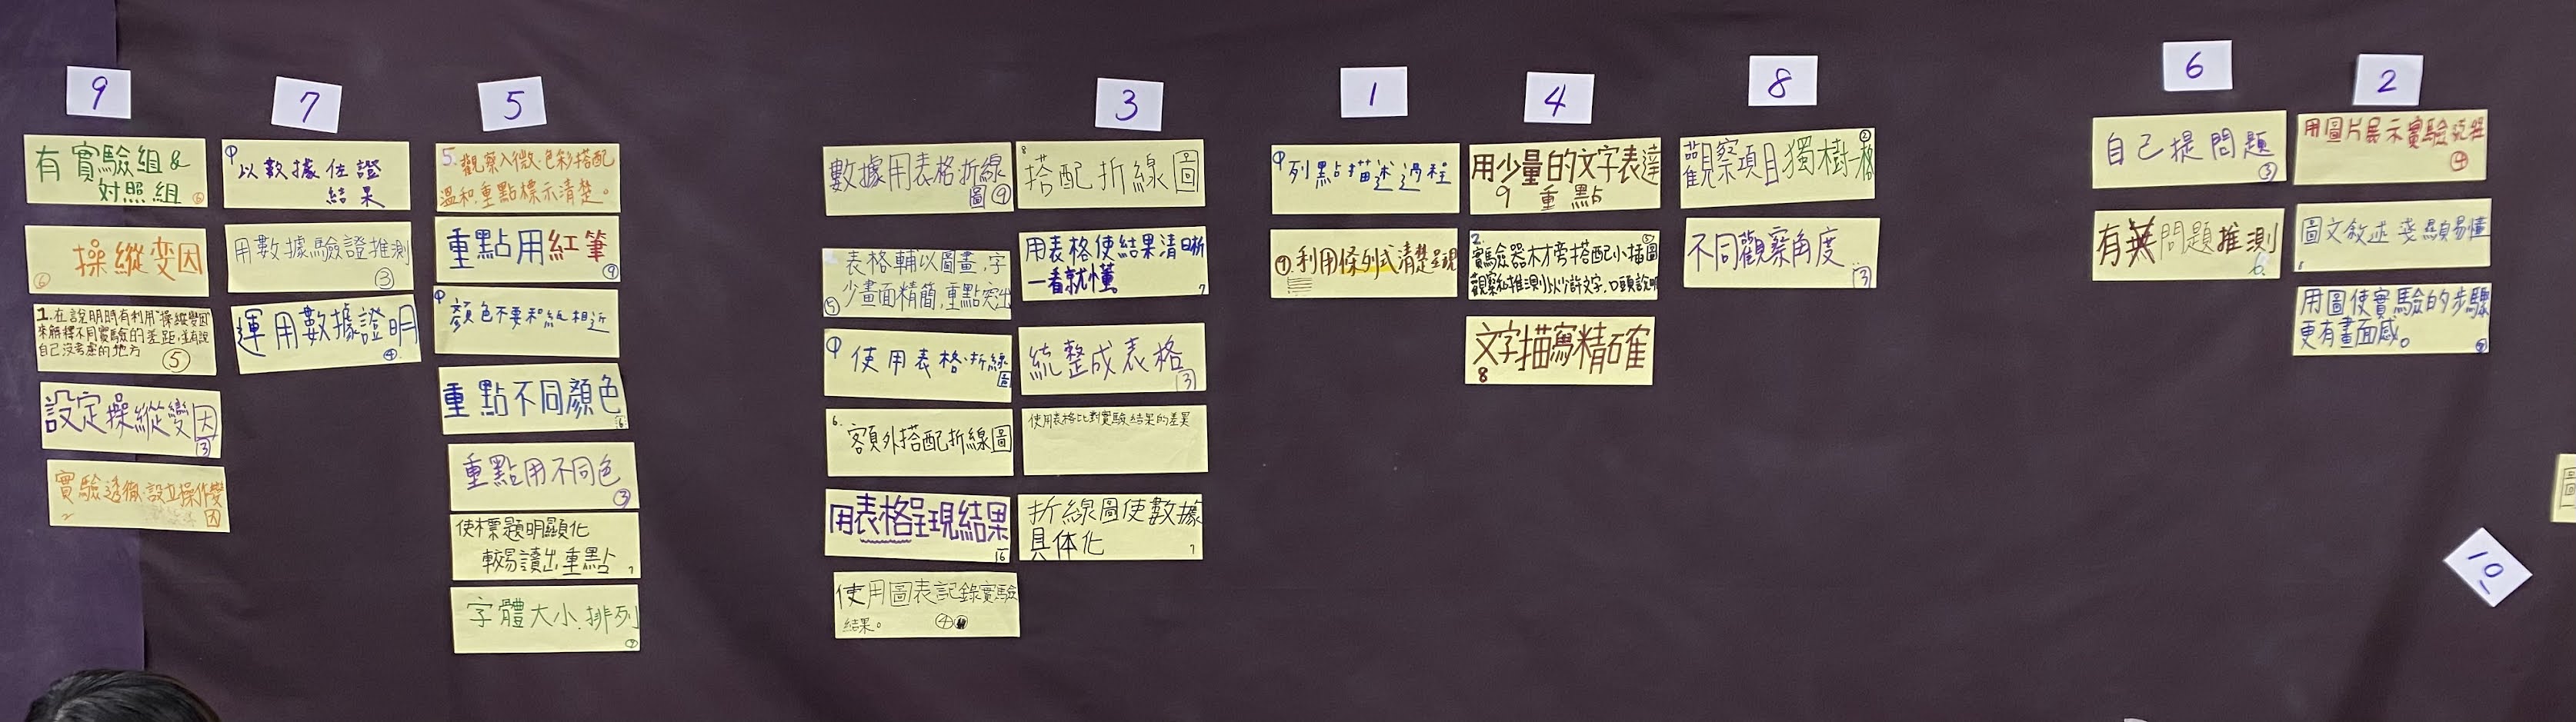 9
有實驗組&
對照組
6
操縱变因
6
1.在說明時有利用"操縱變因"
來解釋不同實驗的差距,並有說
自己沒考慮的地方
5
設定操縱變因
3
實驗透徹.設立操作變
因
2
7
9 以數據佐證
結果
用數據驗證推測
3
運用數據證明
4
5
5. 觀察入微.色彩搭配
溫和.重點標示清楚。
重點用紅筆
9
9 顏色不要和紙相近
重點不同顏色
6
重點用不同色
3
使標題明顯化
較易讀出重點
7
字體大小.排列
3
數據用表格.折線
圖 9
表格輔以圖畫,字
少畫面精簡,重點突出
5
9 使用表格.折線
圖
6. 額外搭配折線圖
用表格呈現結果
6
使用圖表記錄實驗
結果。 4
3
8 搭配折線圖
用表格使結果清晰
一看就懂
7
統整成表格
3
使用表格比對實驗結果的差異
折線圖使數據
具体化
7
1
9 列點描述過程
4. 利用條列式清楚呈現
4
用少量的文字表達
9 重點
2. 實驗器材旁搭配小插圖
觀察和推測以少許文字,口頭說明
5
文字描寫精確
8
8
觀察項目獨樹一格
2
不同觀察角度
3
6
自己提問題
3
有無問題推測
6
2
用圖片展示實驗流程
4
圖文敘述淺顯易懂
用圖使實驗的步驟
更有畫面感。
10